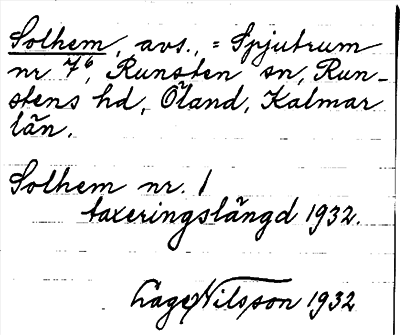 Solhem, avs., = Spjutrum
nr 7⁶, Runsten sn, Run-
stens hd, Öland, Kalmar
län.
Solhem nr. 1
taxeringslängd 1932.
Åage Nilsson 1932